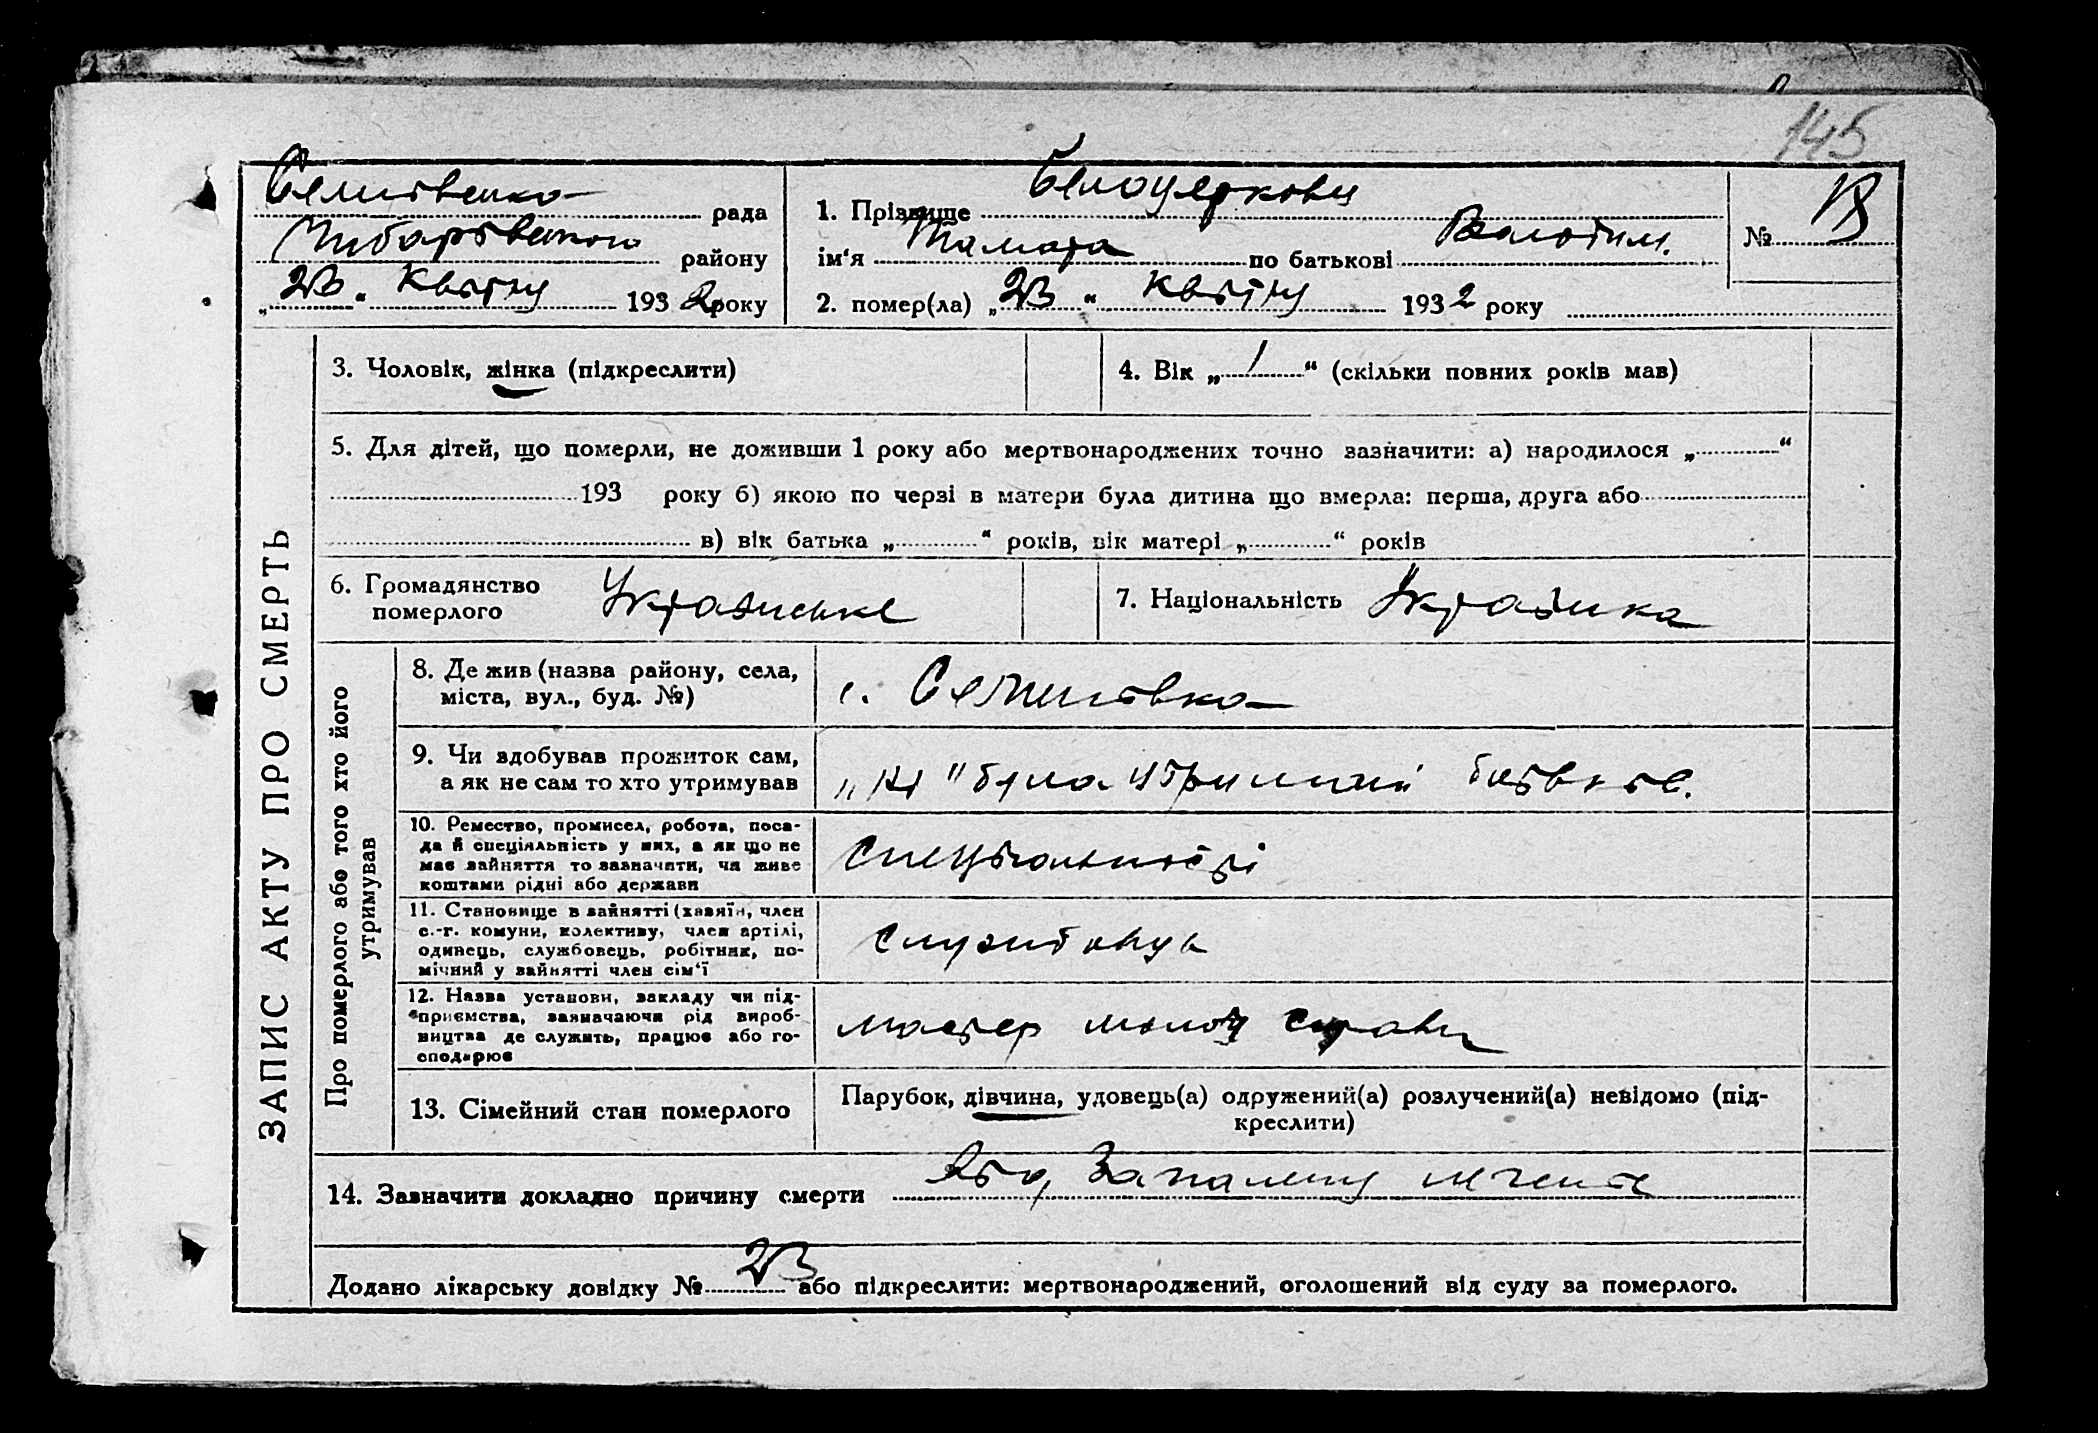 145
Семенівська рада
району
„23“ Квітня 1932 року
1. Прізвище Белоцерковец
ім'я Тамара по батькові Волотим.
№ 18
2. помер(ла) „23“ Квітня 1932 року
ЗАПИС АКТУ ПРО СМЕРТЬ
3. Чоловік, жінка (підкреслити)
4. Вік „1“ (скільки повних років мав)
5. Для дітей, що померли, не доживши 1 року або мертвонароджених точно зазначити: а) народилося „ “
193 року б) якою по черзі в матери була дитина що вмерла: перша, друга або
в) вік батька „ “ років, вік матері „ “ років
6. Громадянство
померлого
Українське
7. Національність Українка
Про померлого або того хто його
утримував
8. Де жив (назва району, села,
міста, вул., буд. №)
с.
9. Чи здобував прожиток сам,
а як не сам то хто утримував
„Ні" була батьків.
10. Ремество, промисел, робота, поса-
да й спеціяльність у них, а як що не
має зайняття то зазначити, чи живе
коштами рідні або держави
Спеціальності
11. Становище в зайнятті (хазяїн, член
с.-г. комуни, колективу, член артілі,
одинець, службовець, робітник, по-
мічний у зайнятті член сім'ї
Служитовець
12. Назва установи, закладу чи під-
приємства, зазначаючи рід вироб-
ництва де служить, працює або го-
сподарює
мастер молоч справи
13. Сімейний стан померлого
Парубок, дівчина, удовець(а) одружений(а) розлучений(а) невідомо (під-
креслити)
14. Зазначити докладно причину смерти Запалення
Додано лікарську довідку № 23 або підкреслити: мертвонароджений, оголошений від суду за померлого.